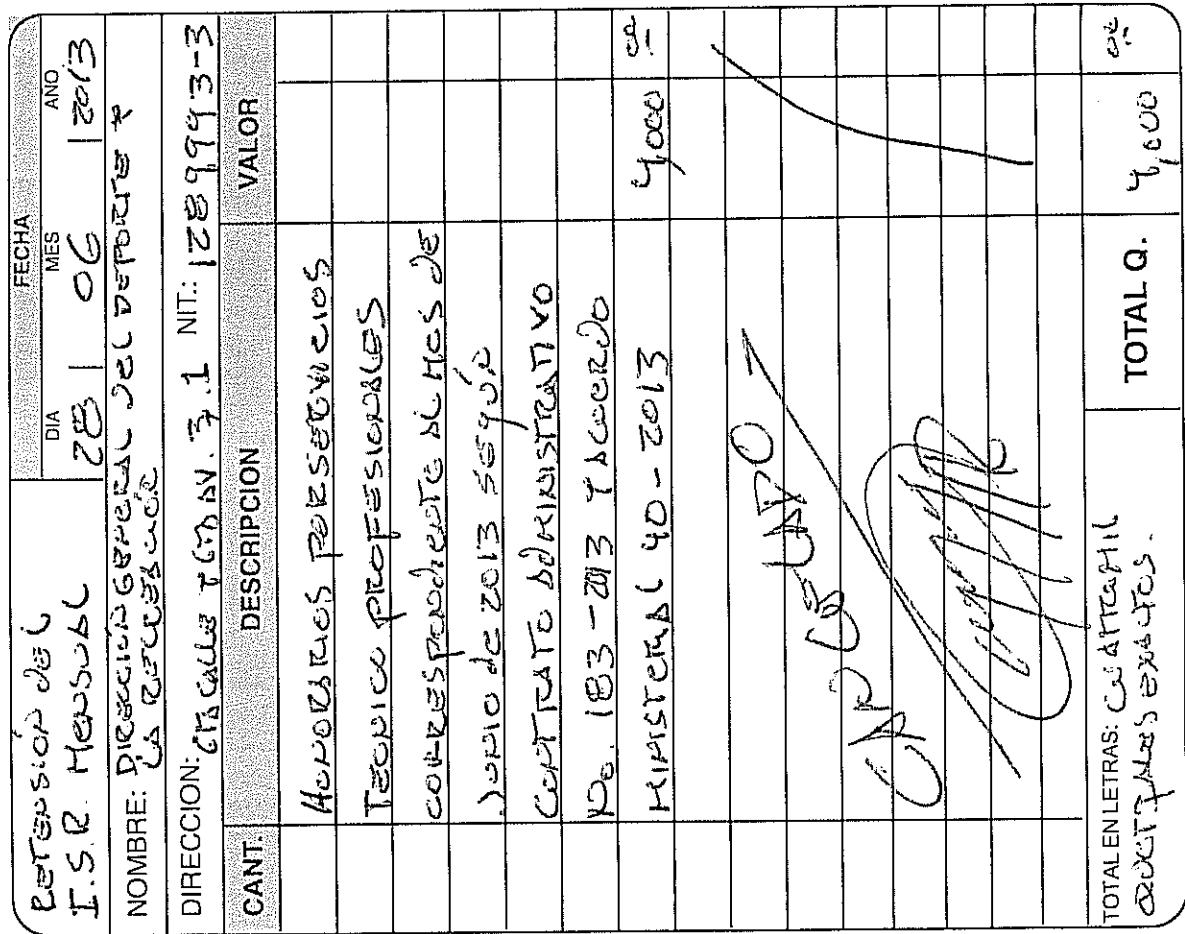 Retensión del
I.S.R. Mensual
FECHA
DIA MES AÑO
28 06 2013
NOMBRE: Dirección General del Deporte y
la Recreación
DIRECCION: 6ta calle y 6ta av. 3 z.1 NIT.: 1289993-3
CANT. DESCRIPCION VALOR
Honorarios por servicios
Tecnico profesionales
correspondiente al mes de
Junio de 2013 según
Contrato Administrativo
No. 183-2013 y acuerdo
Ministerial 40-2013 4,000 00
CANCELADO
TOTAL EN LETRAS: Cuatro mil
quetzales exactos.
TOTAL Q. 4,000 00